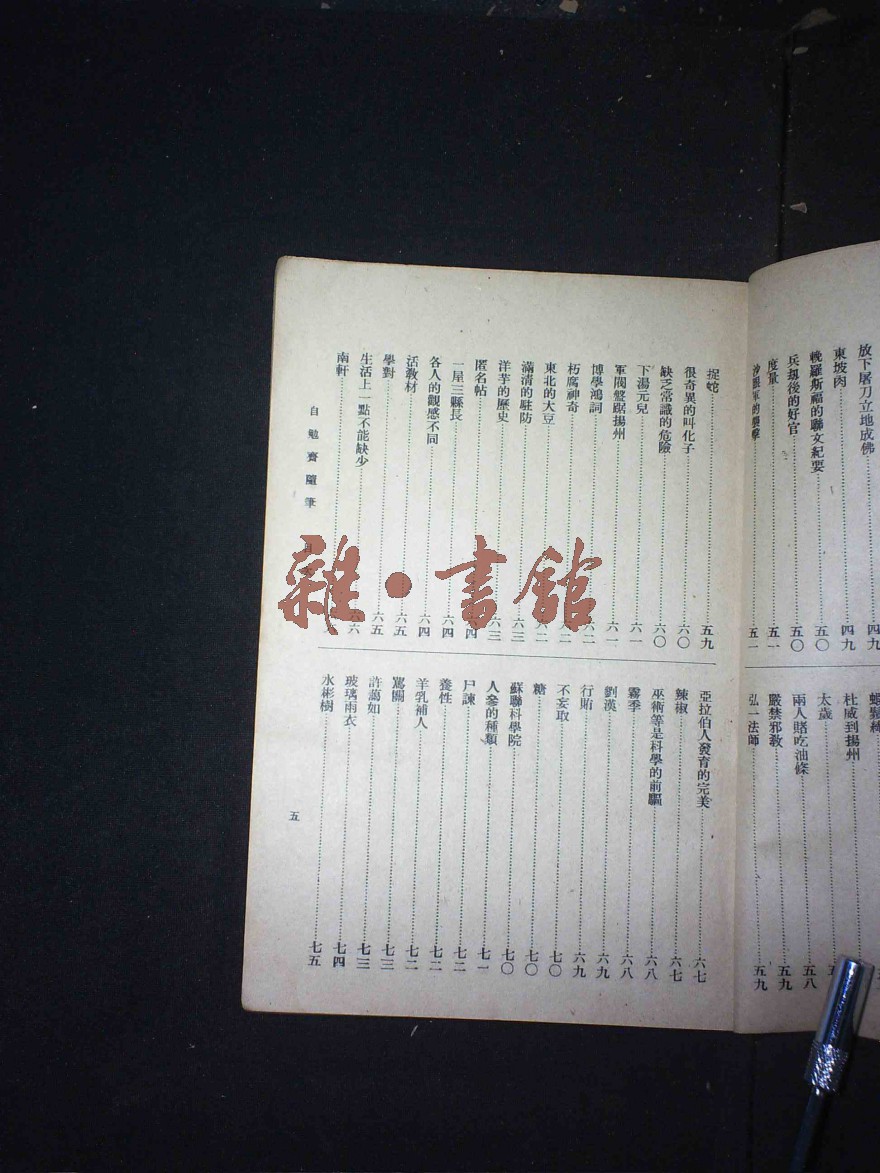 放下屠刀立地成佛 四九
東坡肉 四九
輓羅斯福的聯文紀要 五〇
兵刧後的好官 五〇
度量 五一
軍的襲擊 五一
杜威到揚州
太歲
兩人賭吃油條 五八
嚴禁邪教 五九
弘一法師 五九
捉蛇 五九
很奇異的叫化子 六〇
缺乏常識的危險 六〇
下湯元兒 六一
軍閥盤踞揚州 六一
博學鴻詞
朽腐神奇
東北的大豆
滿清的駐防 六三
洋芋的歷史 六三
匿名帖
一屋三縣長 六四
各人的觀感不同 六四
活教材 六五
學對 六五
生活上一點不能缺少
南軒
亞拉伯人發育的完美 六七
辣椒 六七
巫術等是科學的前驅 六八
霧季 六八
劉漢 六九
行賄 六九
不妄取 七〇
糖 七〇
蘇聯科學院 七〇
人參的種類 七一
尸諫 七二
養性 七二
羊乳補人 七二
罵關 七三
許藹如 七三
玻璃雨衣 七四
水彬樹 七五
自勉齋隨筆
五
雜·書館